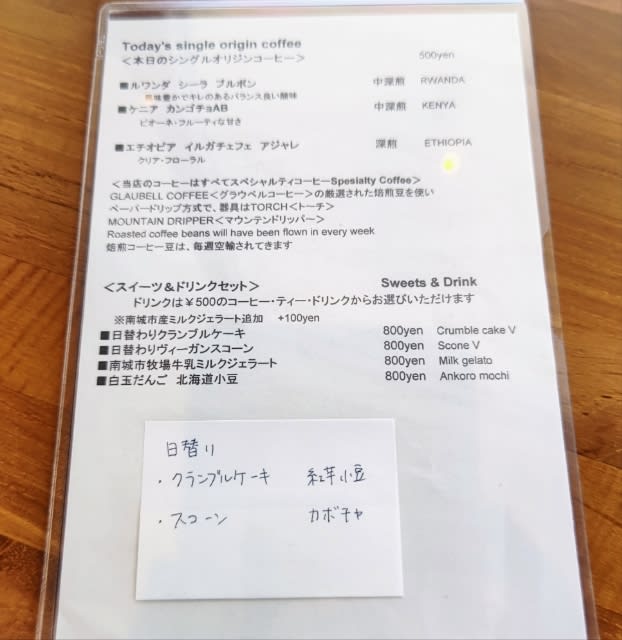 Today's single origin coffee
＜本日のシングルオリジンコーヒー＞ 500yen
■ルワンダ シーラ ブルボン 中深煎 RWANDA
風味豊かでキレのあるバランス良い酸味
■ケニア カンゴチョAB 中深煎 KENYA
ピオーネ・フルーティな甘さ
■エチオピア イルガチェフェ アジャレ 深煎 ETHIOPIA
クリア・フローラル
＜当店のコーヒーはすべてスペシャルティコーヒーSpesialty Coffee＞
GLAUBELL COFFEE＜グラウベルコーヒー＞の厳選された焙煎豆を使い
ペーパードリップ方式で、器具はTORCH＜トーチ＞
MOUNTAIN DRIPPER＜マウンテンドリッパー＞
Roasted coffee beans will have been flown in every week
焙煎コーヒー豆は、毎週空輸されてきます
＜スイーツ＆ドリンクセット＞ Sweets & Drink
ドリンクは￥500のコーヒー・ティー・ドリンクからお選びいただけます
※南城市産ミルクジェラート追加 +100yen
■日替わりクランブルケーキ 800yen Crumble cake V
■日替わりヴィーガンスコーン 800yen Scone V
■南城市牧場牛乳ミルクジェラート 800yen Milk gelato
■白玉だんご 北海道小豆 800yen Ankoro mochi
日替り
・クランブルケーキ 紅芋小豆
・スコーン カボチャ